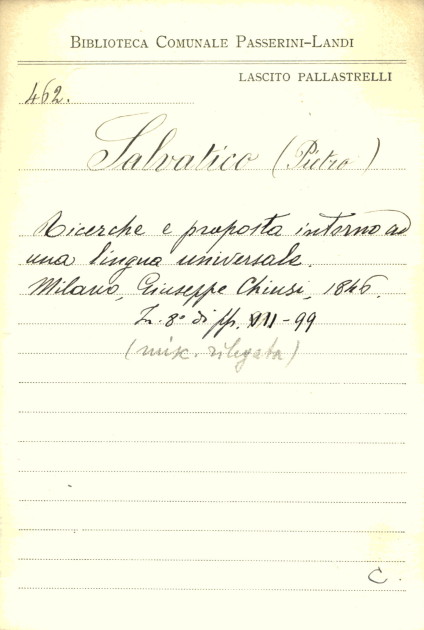 BIBLIOTECA COMUNALE PASSERINI-LANDI
LASCITO PALLASTRELLI
462.
Salvatico (Pietro)
Ricerche e proposta intorno ad
una lingua universale.
Milano, Giuseppe Chiusi, 1846.
In 8° di pp. VII-99
(misc. rilegata)
C.